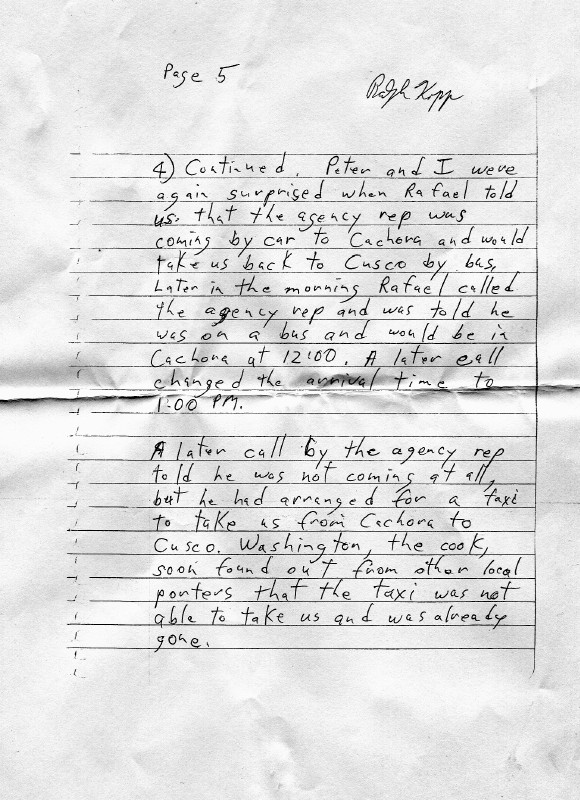 Page 5
Ralph Kopp
4) Continued. Peter and I were
again surprised when Rafael told
us that the agency rep was
coming by car to Cachora and would
take us back to Cusco by bus,
Later in the morning Rafael called
the agency rep and was told he
was on a bus and would be in
Cachora at 12:00. A later call
changed the arrival time to
1:00 PM.
A later call by the agency rep
told he was not coming at all,
but he had arranged for a taxi
to take us from Cachora to
Cusco. Washington, the cook,
soon found out from other local
porters that the taxi was not
able to take us and was already
gone.